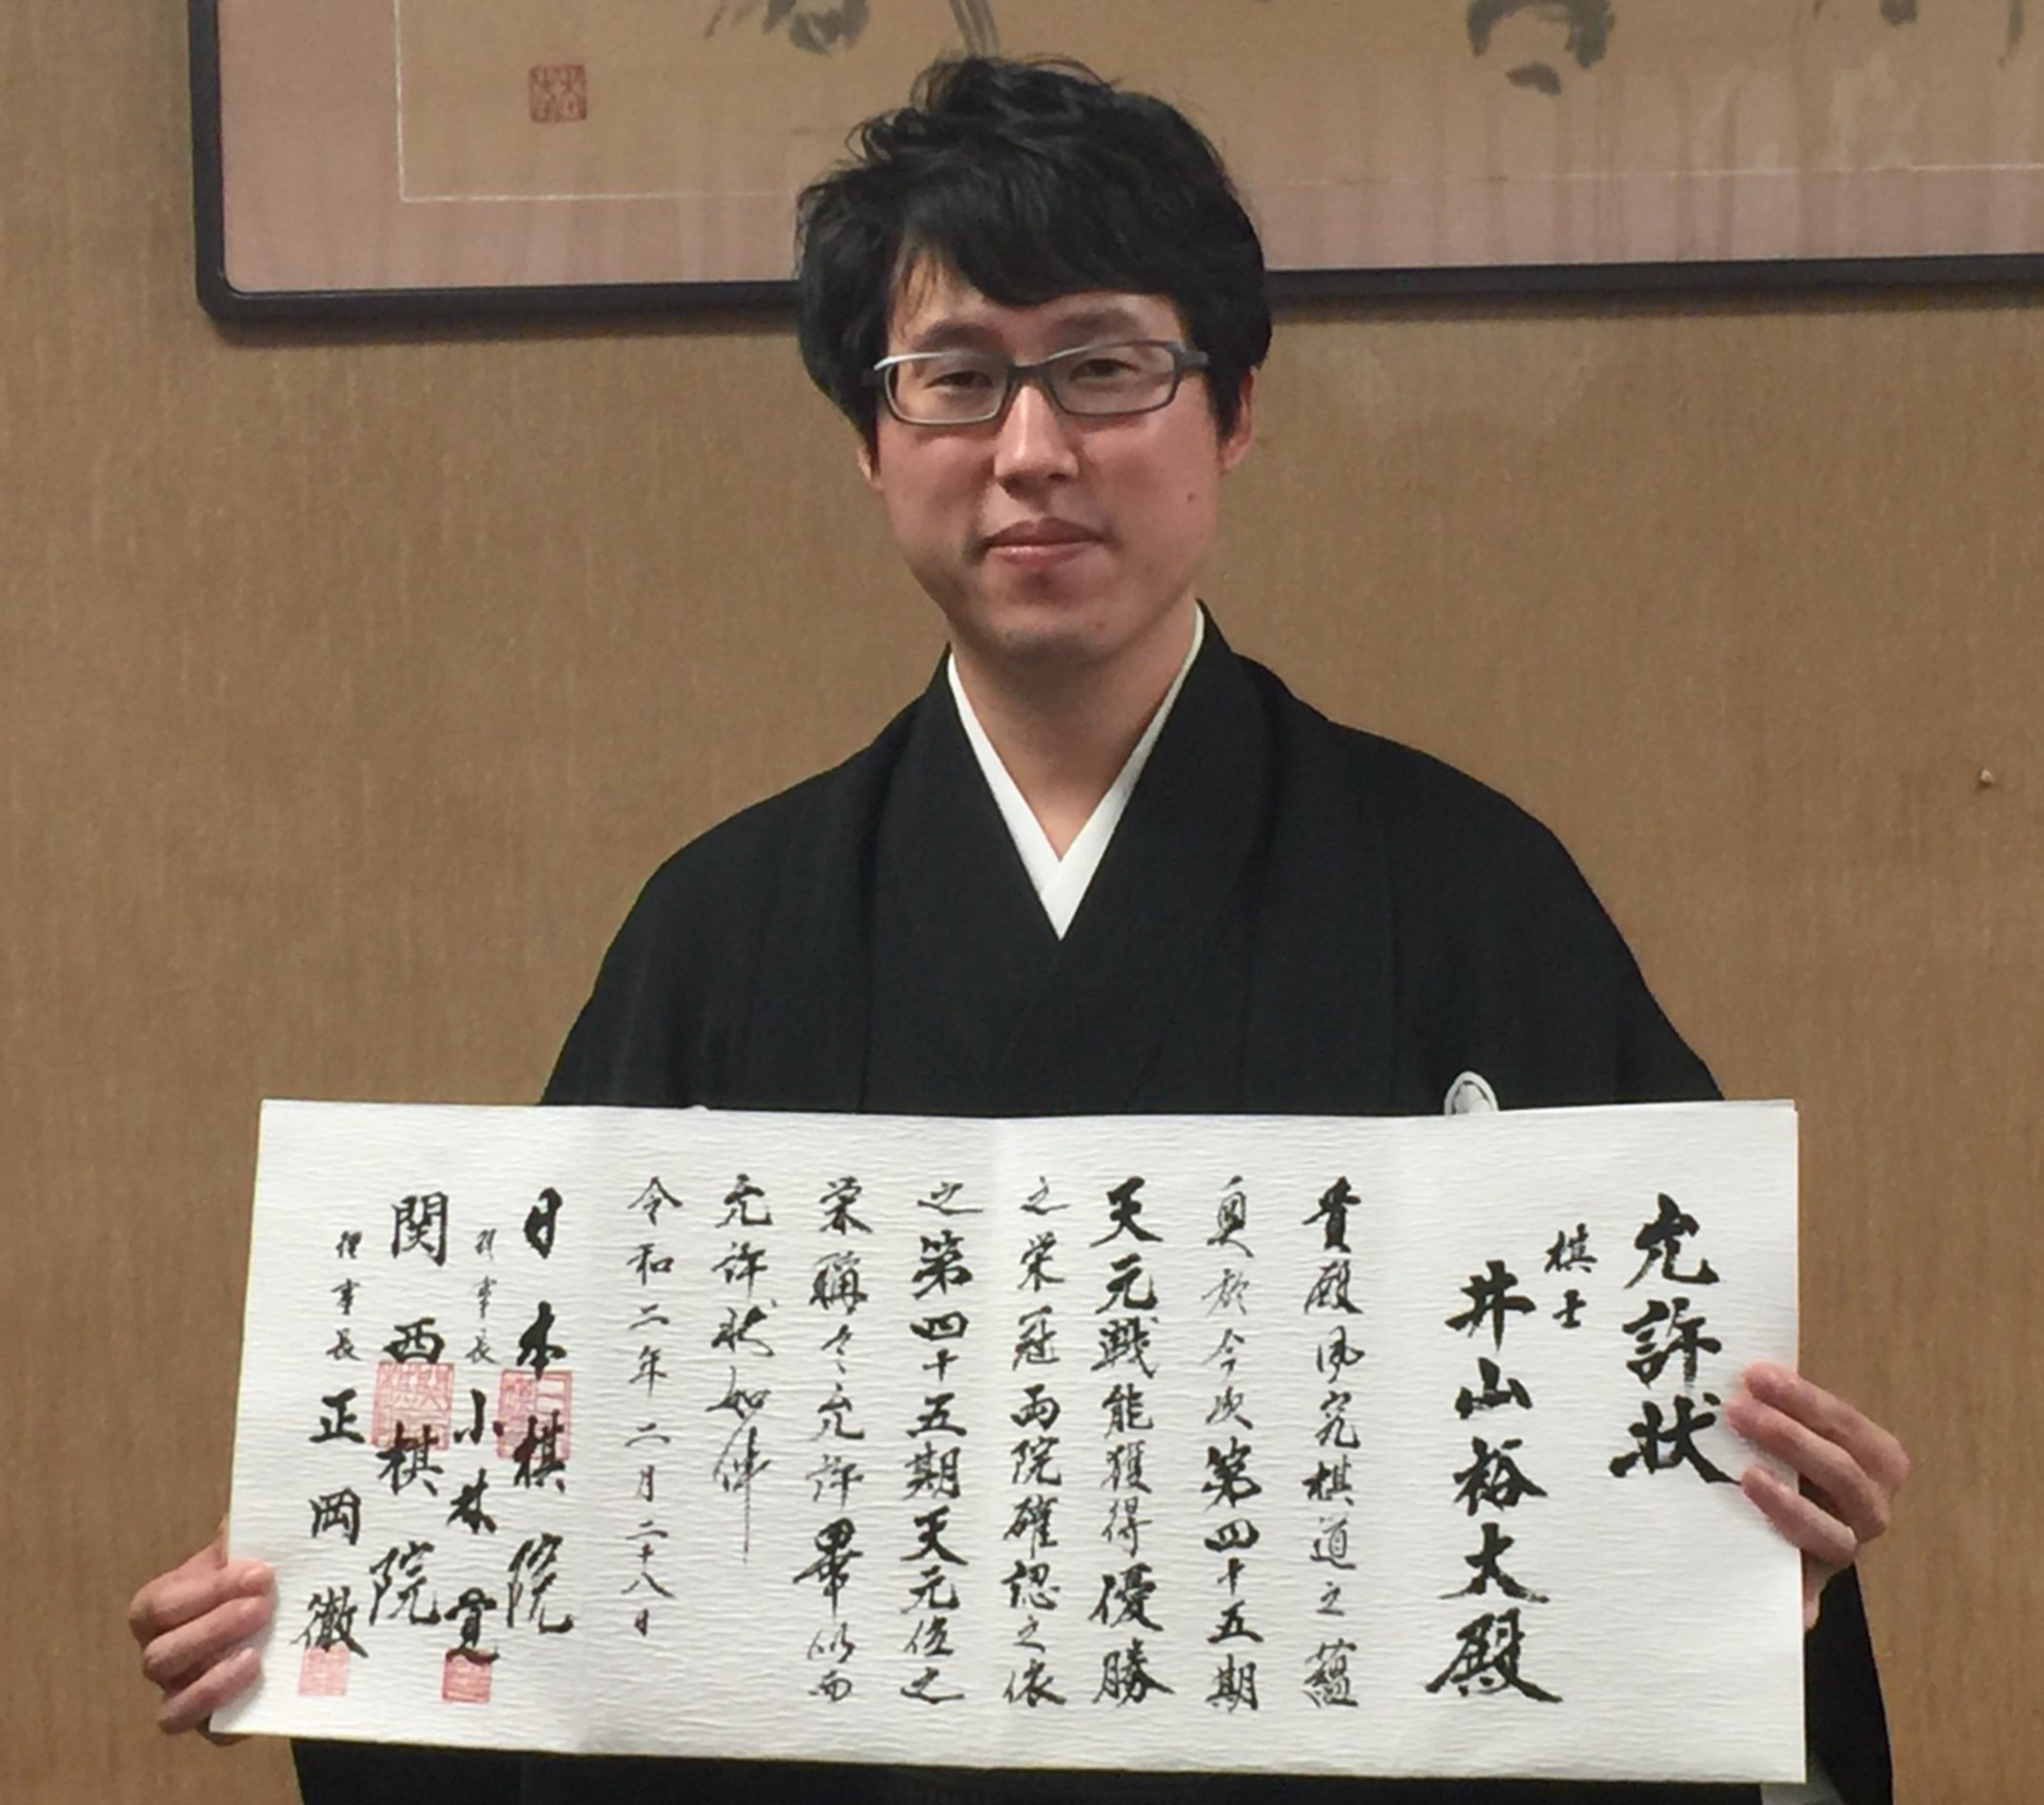 允許狀
棋士
井山裕太殿
貴殿夙究棋道之蘊
奥於今次第四十五期
天元戦能獲得優勝
之栄冠両院確認之依
之第四十五期天元位之
栄稱々允許畢仍而
允許状如件
令和二年二月二十八日
日本棋院
理事長 小林覚
関西棋院
理事長 正岡徹